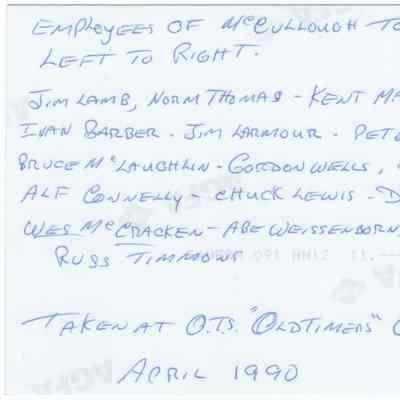 EMPLOYEES OF McCULLOUGH TO
LEFT TO RIGHT.
JIM LAMB, NORM THOMAS - KENT MA
IVAN BARBER - JIM LARMOUR - PET
BRUCE McLAUGHLIN - GORDON WELLS,
ALF CONNELLY - CHUCK LEWIS - D
WES McCRACKEN - ABE WEISSENBORN,
RUSS TIMMONS
TAKEN AT O.T.S. "OLDTIMERS" C
APRIL 1990
AGFA